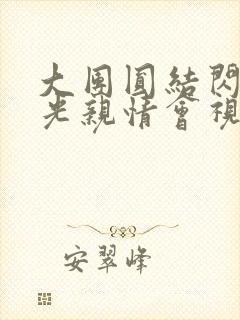 大團圓結閃
光親情會視
安翠峰